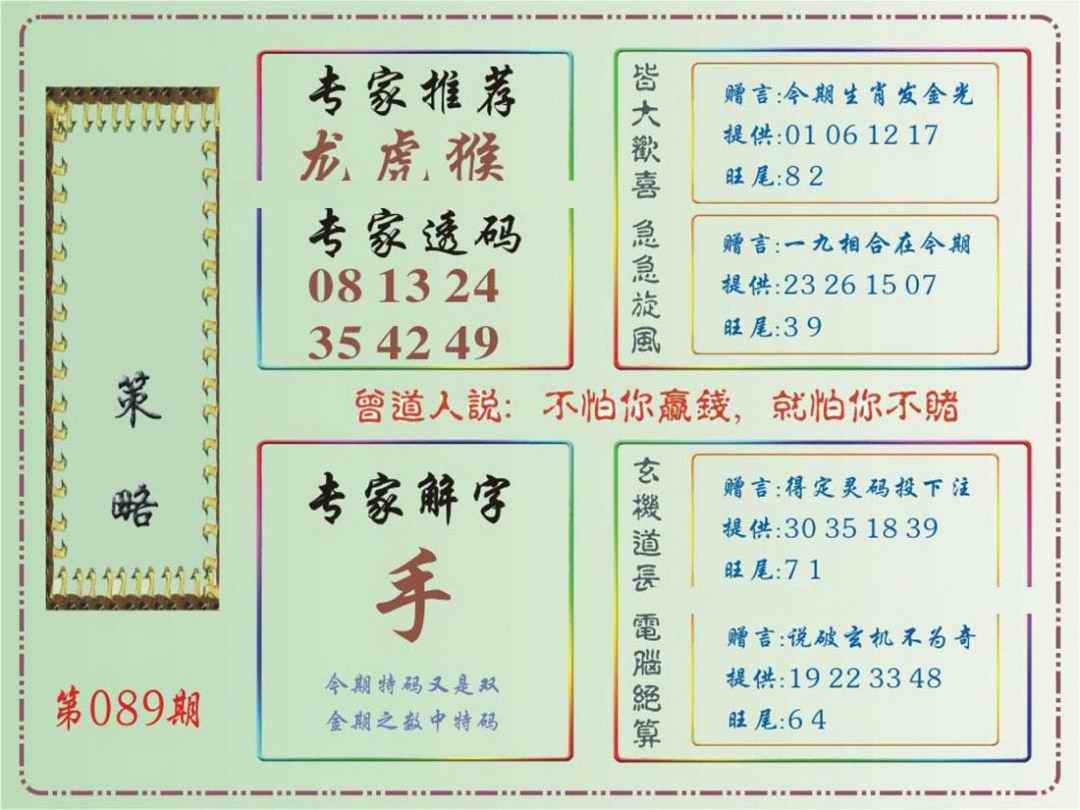 策略
第089期
专家推荐
龙虎猴
专家透码
08 13 24
35 42 49
皆大歡喜
赠言:今期生肖发金光
提供:01 06 12 17
旺尾:8 2
急急旋風
赠言:一九相合在今期
提供:23 26 15 07
旺尾:3 9
曾道人説: 不怕你贏錢, 就怕你不賭
专家解字
手
今期特码又是双
金期之数中特码
玄機道長
赠言:得定灵码投下注
提供:30 35 18 39
旺尾:7 1
電腦絕算
赠言:说破玄机不为奇
提供:19 22 33 48
旺尾:6 4